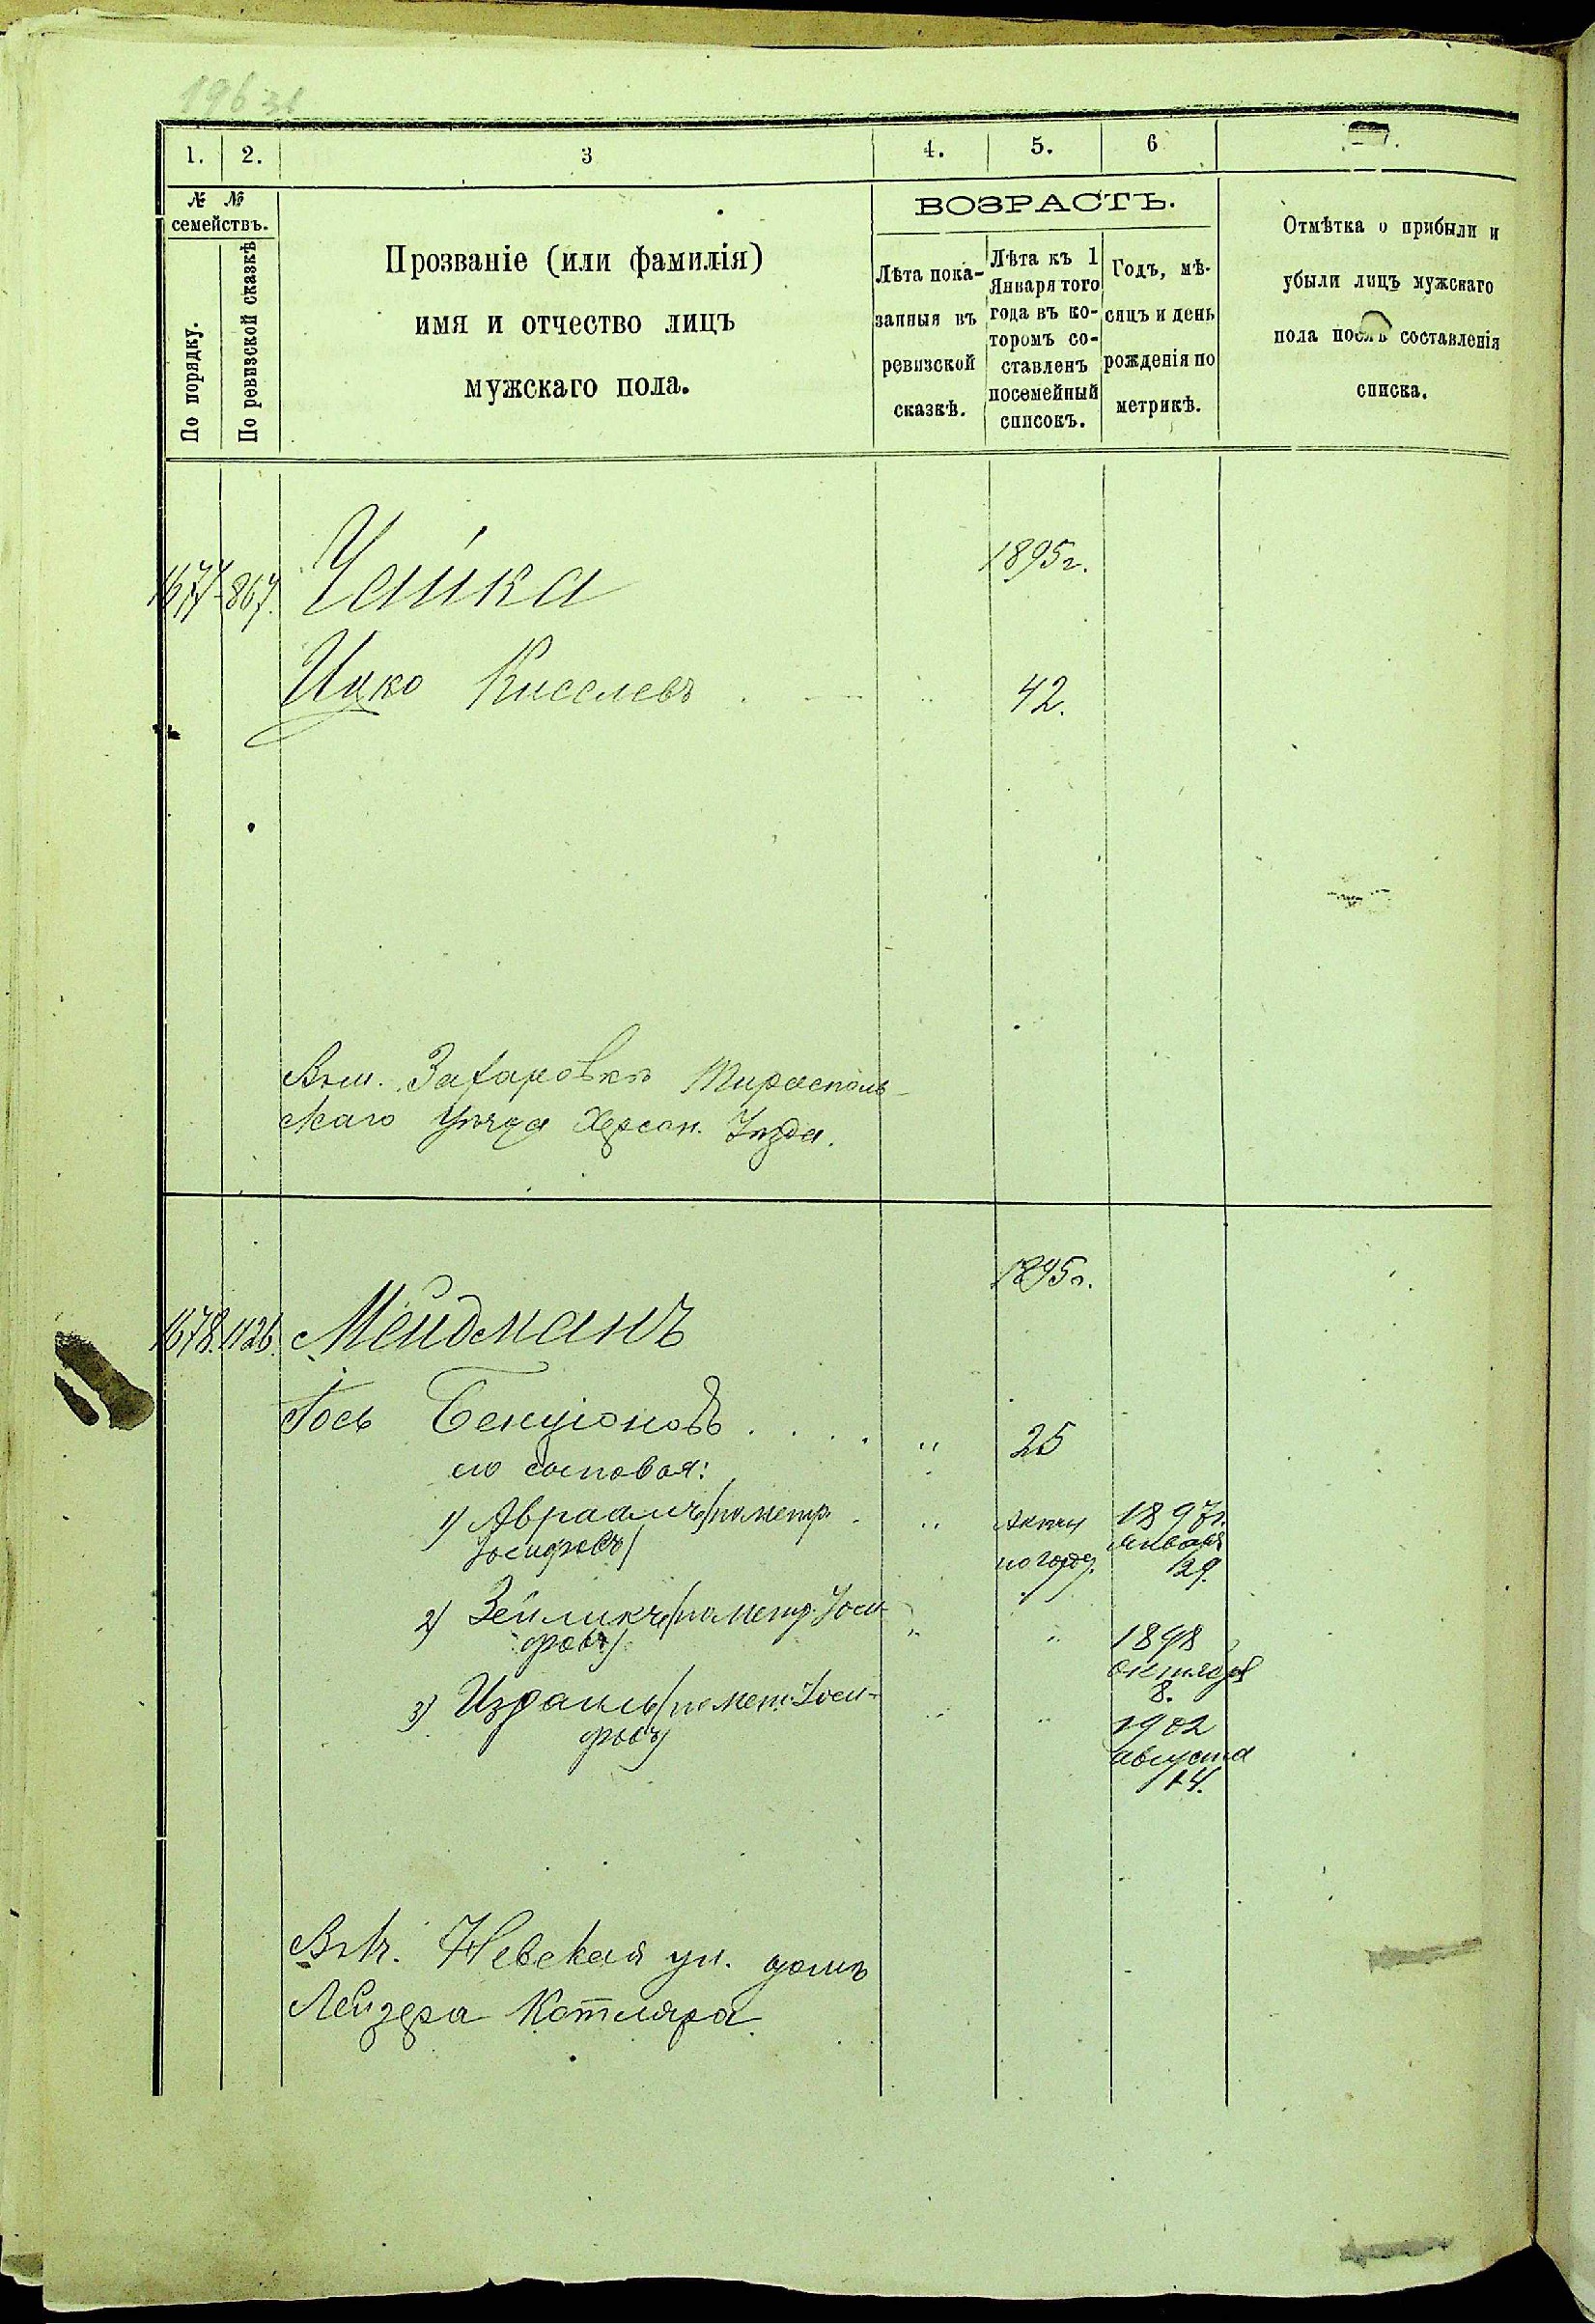 196 31
1. 2. 3 4. 5. 6 7.
№ №
семействъ.
По порядку.
По ревизской сказкѣ
Прозваніе (или фамилія)
имя и отчество лицъ
мужскаго пола.
ВОЗРАСТЪ.
Лѣта пока-
занныя въ
ревизской
сказкѣ.
Лѣта къ 1
Января того
года въ ко-
торомъ со-
ставленъ
посемейный
списокъ.
Годъ, мѣ-
сяцъ и день
рожденія по
метрикѣ.
Отмѣтка о прибыли и
убыли лицъ мужскаго
пола послѣ составленія
списка.
1895г.
1677 867. Чайка
Ицко Киселевъ . 42.
Захаровкѣ Тираспол-
скаго Херсон.
1895г.
1678. 1126. Мейдманъ
Іось Бенціоновъ . . . . " 25
его сыновья:
1) Авраамъ /по метр. " 1897г.
Іосифовъ/ по января
29.
2) Зейликъ /по метр. Іоси- " " 1898
фовъ/ октября
8.
3) Израиль /по мет. Іоси- " " 1902
фовъ/ августа
14.
Невская ул. домъ
Лейзера Котляра.